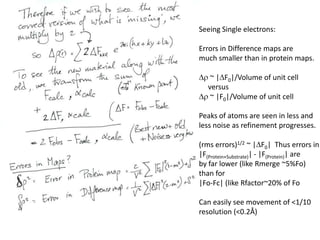 Therefore if we wish to see the most
correct version of "what is missing", we
multiply by 2
so Δρ(r) = Σ 2ΔF e
To see the new material along with the
old, we transform the sum of
Fcalc, αcalc (Known part)
+
2ΔF, αcalc (ΔF = Fobs - Fcalc)
= 2Fobs - Fcalc, αcalc (Best new + old + Noise)
Errors in Maps?
= Error in Protein map =
= Error in Difference map =
Seeing Single electrons:
Errors in Difference maps are
much smaller than in protein maps.
Δρ ~ |ΔF₀|/Volume of unit cell
versus
Δρ ~ |F₀|/Volume of unit cell
Peaks of atoms are seen in less and
less noise as refinement progresses.
(rms errors)¹/² ~ |ΔF₀| Thus errors in
|F(Protein+Substrate)| - |F(Protein)| are
by far lower (like Rmerge ~5%Fo)
than for
|Fo-Fc| (like Rfactor~20% of Fo
Can easily see movement of <1/10
resolution (<0.2Å)